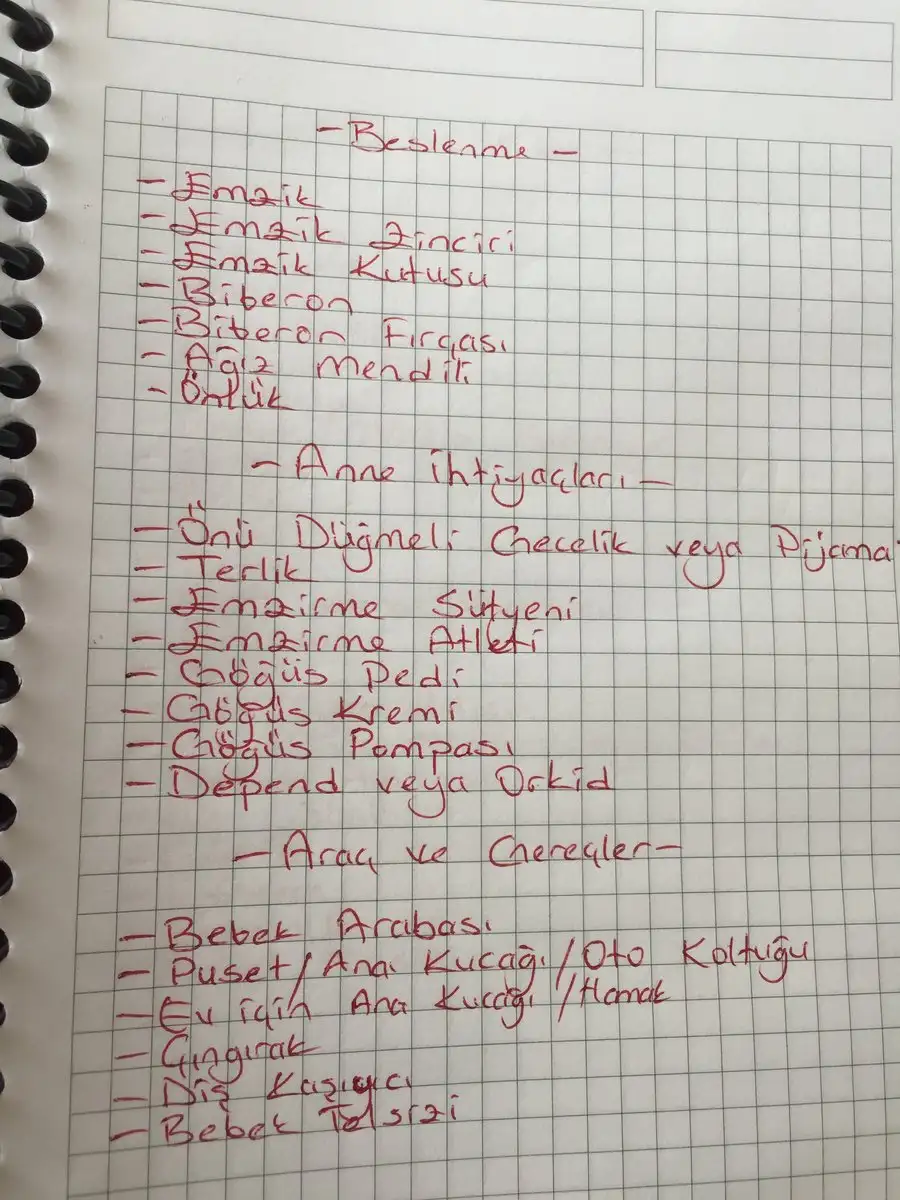 - Beslenme -
- Emzik
- Emzik Zinciri
- Emzik Kutusu
- Biberon
- Biberon Fırçası
- Ağız Mendili
- Önlük
- Anne ihtiyaçları -
- Önü Düğmeli Gecelik veya Pijama
- Terlik
- Emzirme Sütyeni
- Emzirme Atleti
- Göğüs Pedi
- Göğüs Kremi
- Göğüs Pompası
- Depend veya Orkid
- Araç ve Gereçler -
- Bebek Arabası
- Puset / Ana Kucağı / Oto Koltuğu
- Ev için Ana Kucağı / Hamak
- Çıngırak
- Diş Kaşıyıcı
- Bebek Telsizi